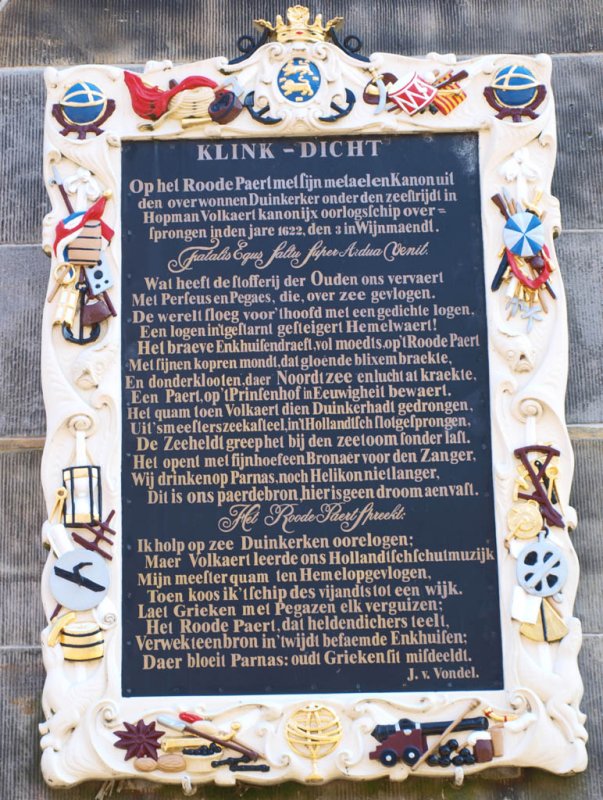 KLINK - DICHT
Op het Roode Paert met sijn metaelen Kanon uit
den overwonnen Duinkerker onder den zeestrijdt in
Hopman Volkaert kanonijx oorlogsschip over =
sprongen in den jare 1622, den 3 in Wijnmaendt.
Fatalis Equs saltu super Ardua Venit.
Wat heeft de stofferij der Ouden ons vervaert
Met Perseus en Pegaes, die, over zee gevlogen.
De werelt sloeg voor 't hoofd met een gedichte logen,
Een logen in't gestarnt gesteigert Hemelwaert!
Het braeve Enkhuisen draeft, vol moedts, op 't Roode Paert
Met sijnen kopren mondt, dat gloende blixem braekte,
En donderklooten, daer Noordt zee en lucht at kraekte,
Een Paert, op 't Prinsenhof in Eeuwigheit bewaert.
Het quam toen Volkaert dien Duinkerhadt gedrongen,
Uit 's meesters zeekasteel, in't Hollandtsch slot gesprongen,
De Zeeheldt greep het bij den zeetoom sonder last.
Het opent met sijn hoef een Bronaer voor den Zanger,
Wij drinken op Parnas, noch Helikon niet langer,
Dit is ons paerdebron, hier is geen droom aen vast.
Het Roode Paert Spreekt:
Ik holp op zee Duinkerken oorelogen;
Maer Volkaert leerde ons Hollandtsch schutmuzijk
Mijn meester quam ten Hemel opgevlogen,
Toen koos ik 't schip des vijandts tot een wijk.
Laet Grieken met Pegazen elk verguizen;
Het Roode Paert, dat heldendichers teelt,
Verwekt een bron in 't wijdt befaemde Enkhuisen;
Daer bloeit Parnas: oudt Grieken sit misdeeldt.
J. v. Vondel.